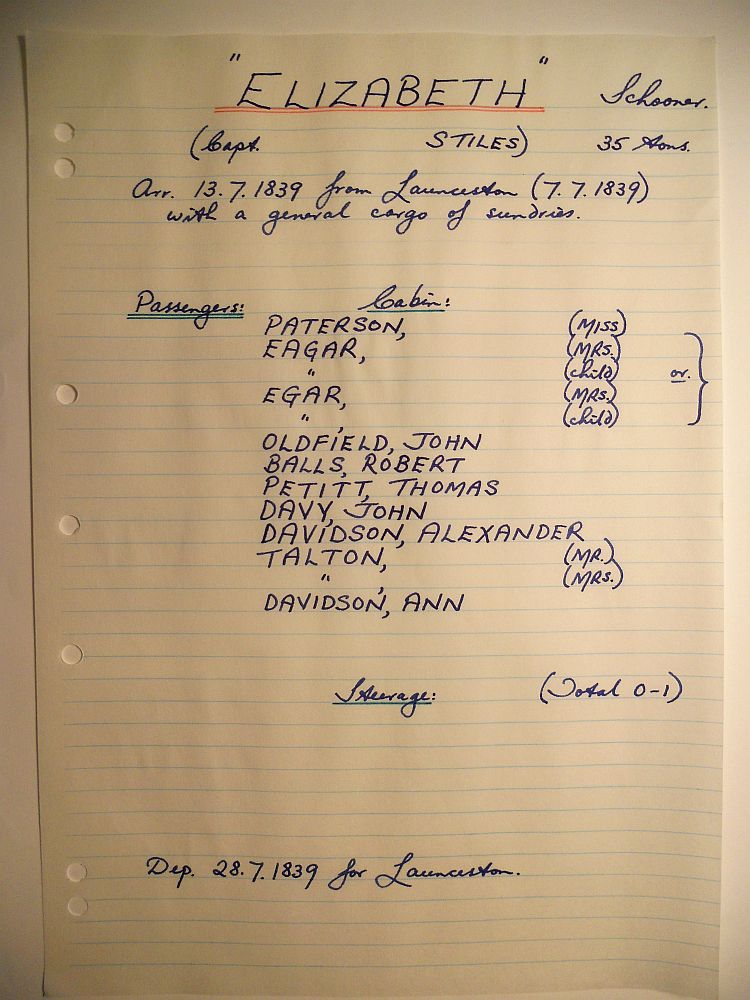 "ELIZABETH" Schooner.
(Capt. STILES) 35 tons.
Arr. 13.7.1839 from Launceston (7.7.1839)
with a general cargo of sundries.
Passengers: Cabin:
PATERSON, (MISS)
EAGAR, (MRS.)
" (child) or.
EGAR, (MRS.)
" , (child)
OLDFIELD, JOHN
BALLS, ROBERT
PETITT, THOMAS
DAVY, JOHN
DAVIDSON, ALEXANDER
TALTON, (MR.)
" , (MRS.)
DAVIDSON, ANN
Steerage: (Total 0-1)
Dep. 28.7.1839 for Launceston.